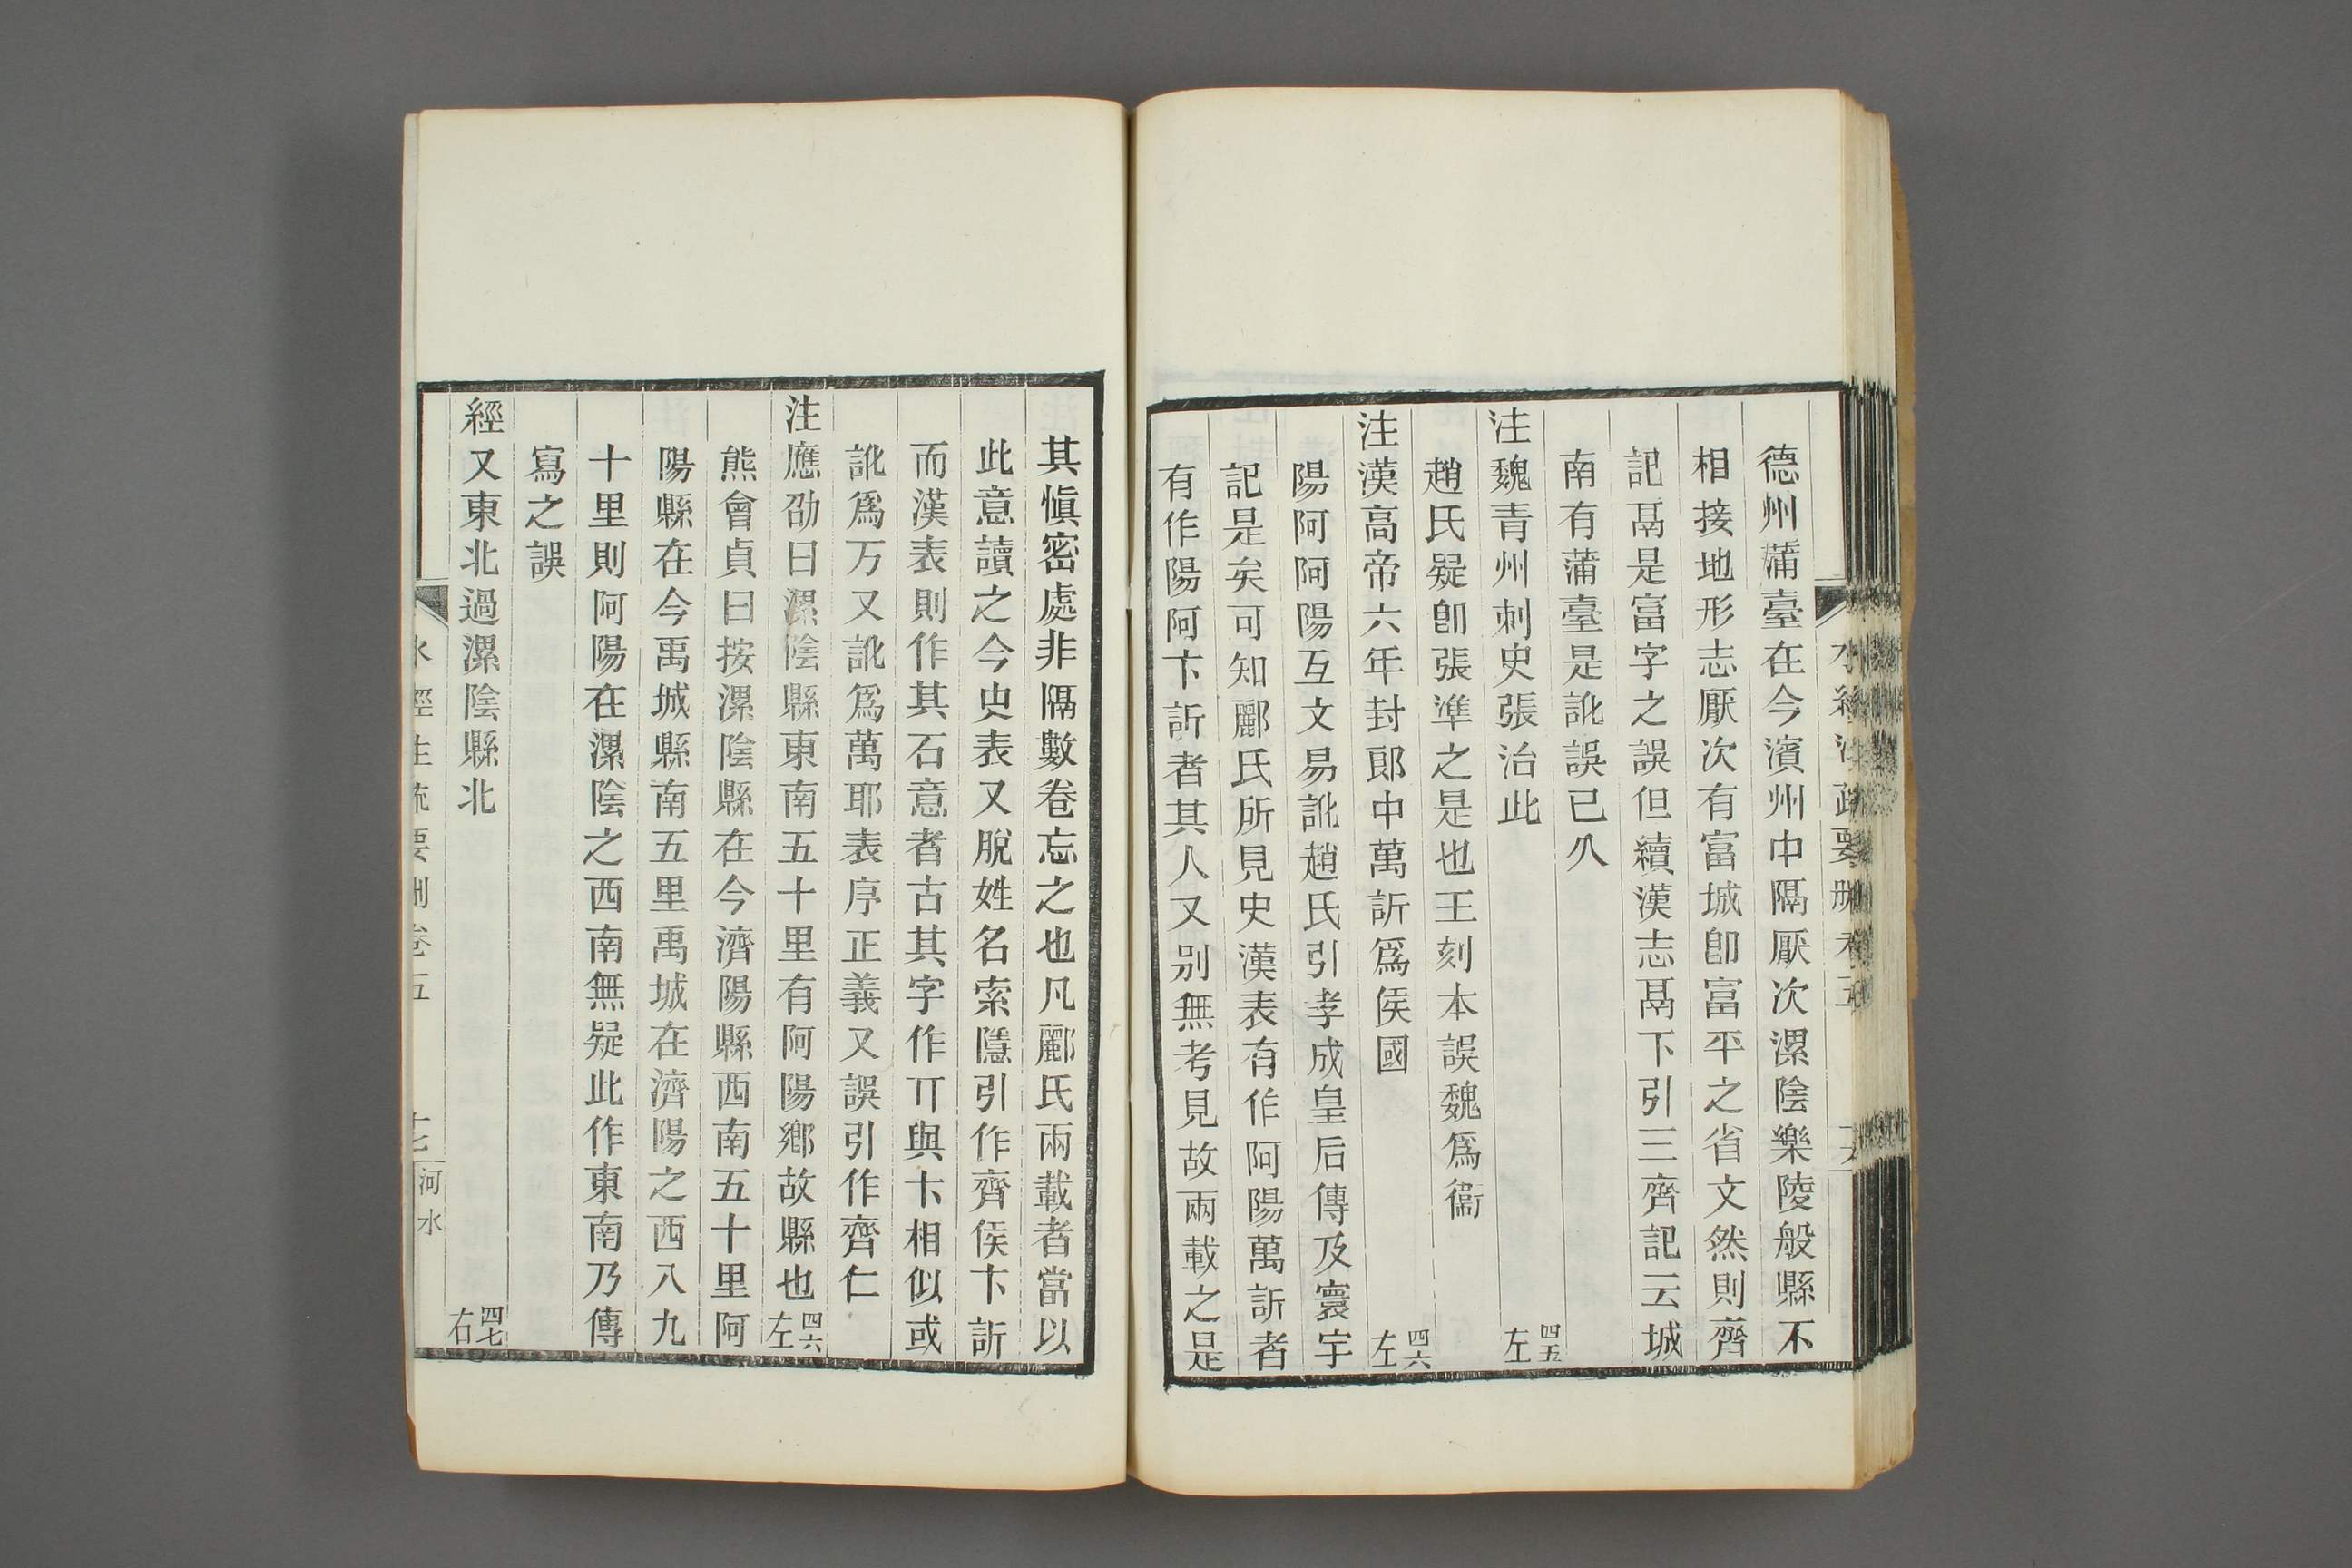 德州蒲臺在今濱州中隔厭次漯陰樂陵般縣不
相接地形志厭次有富城卽富平之省文然則齊
記鬲是富字之誤但續漢志鬲下引三齊記云城
南有蒲臺是訛誤已久
注魏青州刺史張治此 四五左
趙氏疑卽張準之是也王刻本誤魏爲衞
注漢高帝六年封郎中萬訢爲侯國 四六左
陽阿阿陽互文易訛趙氏引孝成皇后傳及寰宇
記是矣可知酈氏所見史漢表有作阿陽萬訢者
有作陽阿卞訢者其人又別無考見故兩載之是
其愼密處非隔數卷忘之也凡酈氏兩載者當以
此意讀之今史表又脫姓名索隱引作齊侯卞訢
而漢表則作其石意者古其字作丌與卞相似或
訛爲万又訛爲萬耶表序正義又誤引作齊仁
注應劭曰漯陰縣東南五十里有阿陽鄉故縣也 四六左
熊會貞曰按漯陰縣在今濟陽縣西南五十里阿
陽縣在今禹城縣南五里禹城在濟陽之西八九
十里則阿陽在漯陰之西南無疑此作東南乃傳
寫之誤
經又東北過漯陰縣北 四七右
水經注疏要刪卷五 十七 河水